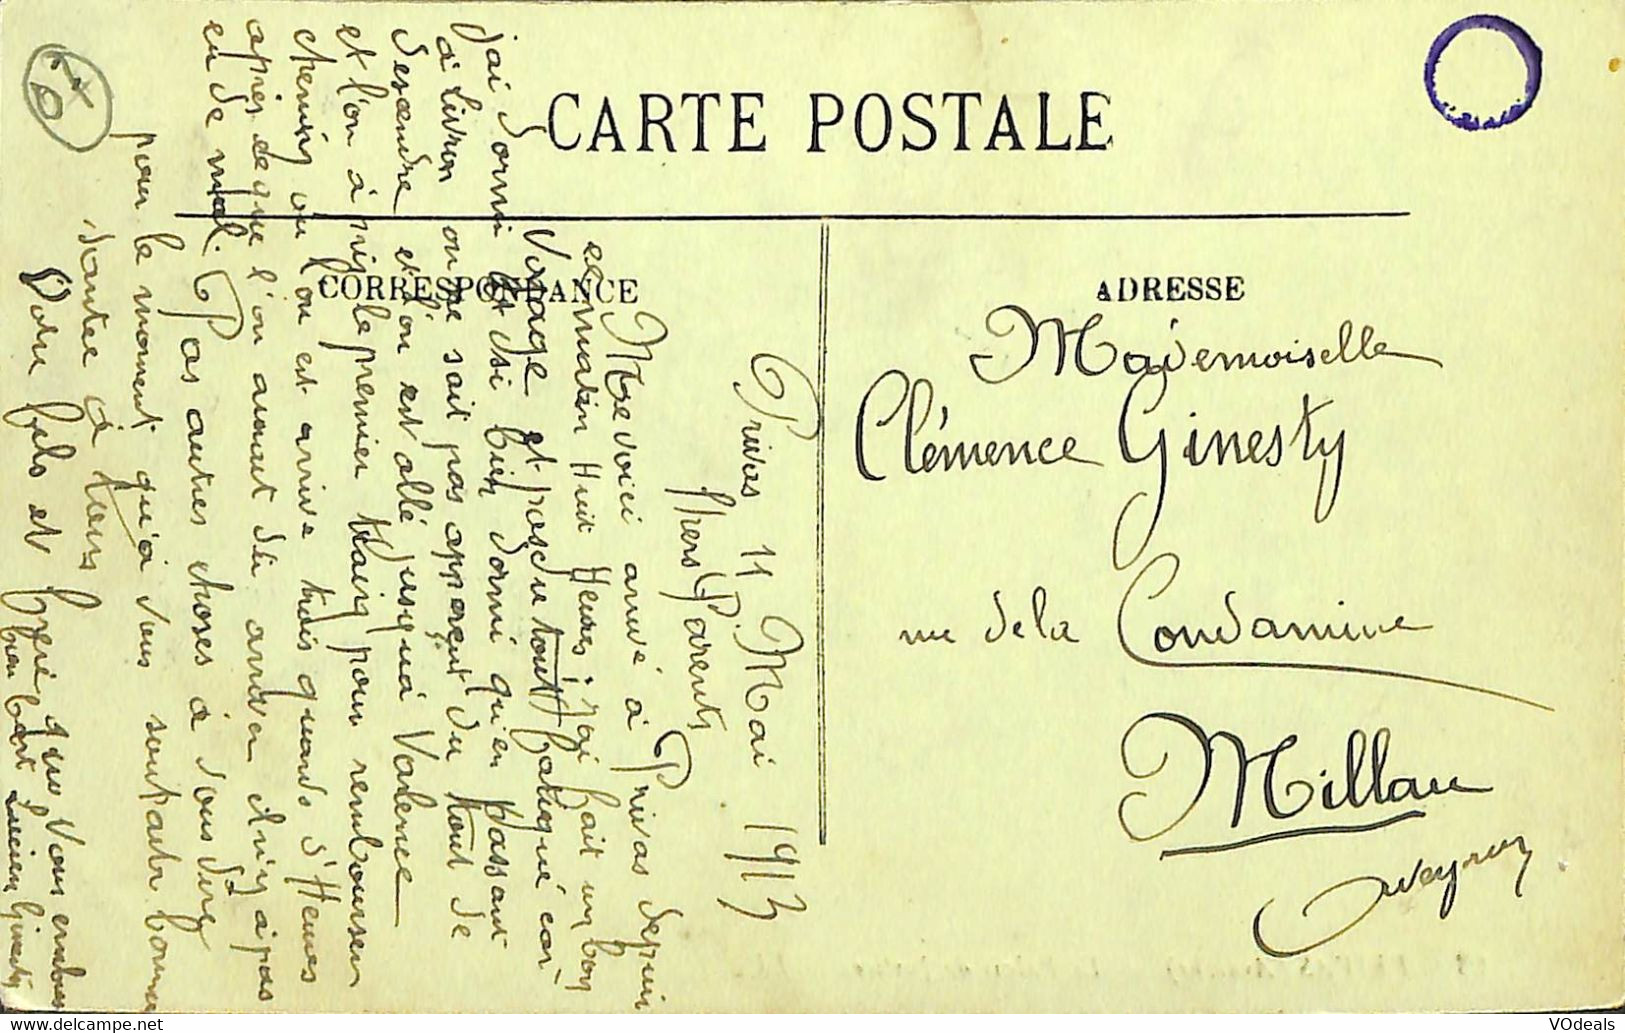 CARTE POSTALE
CORRESPONDANCE
ADRESSE
Mademoiselle
Clémence Ginesty
rue de la Condamine
Millau
Aveyron
Privas 11 Mai 1913
Chers Parents
Me voici arrivé à Privas depuis
ce matin Huit Heures; j'ai fait un bon
voyage et pas du tout fatigué car
j'ai dormi et si bien dormi qu'en passant
à Livron on ne sait pas apperçut du tout de
descendre et l'on est allé jusqu'à Valence
et l'on à pris le premier traing pour rembourser
chemin, où l'on est arrivé trois quards d'Heures
après de que l'on aurait dû arriver il n'y à pas
eu de mal. Pas autres choses à vous dire
pour le moment qu'à vous souhaiter bonne
santée à tous
Votre fils et frère que vous embrasse
bien fort Lucien Ginesty
VOdeals